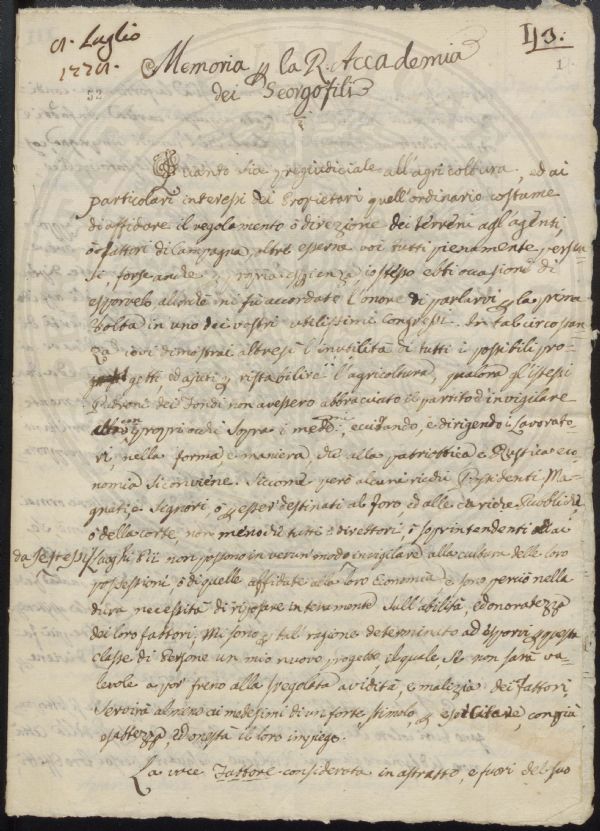 5. Luglio
1775.
52
43.
1
Memoria p la R. Accademia
dei Georgofili
Quanto sia pregiudiciale all'agricoltura, ed ai
particolari interessi dei Proprietari quell'ordinario costume
di affidare il regolamento ò direzione dei terreni agl'agenti,
ò fattori di Campagna, oltre esserne voi tutti pienamente persua
si, forse anche p propria esperienza io stesso ebbi occasione di
esporvelo allorchè mi fù accordato l'onore di parlarvi p la prima
volta in uno dei vostri utilissimi Congressi. In tal circostan
za io vi dimostrai altresì l'inutilità di tutti i possibili pro-
getti, ed ajuti p ristabilire l'agricoltura, qualora gl'istessi
Padroni dei fondi non avessero abbracciato il partito d'invigilare
con i propri occhi sopra i med:, eccitando, e dirigendo i lavorato
ri, nella forma, e maniera, che alla patriottica e Rustica eco
nomia si conviene. Siccome però alcuni ricchi Possidenti Ma
gnati e Signori, ò p esser destinati al foro, ed alle cariche Pubbliche
ò della corte, non meno che tutti i direttori, i soprintendenti ai
da se stessi Luoghi Pii non possono in verun modo invigilare alla cultura delle loro
possessioni, ò di quelle affidate alla loro Economia e sono perciò nella
dura necessità di riposare interamente sull'abilità, ed onoratezza
dei loro fattori; Mi sono p tal ragione determinato ad esporvi p questa
classe di Persone un mio nuovo progetto il quale se non sarà va-
levole a por freno alla sregolata avidità, e malizia dei fattori,
servirà almeno ai medesimi di un forte stimolo, p esercitare, con più
esattezza, ed onestà il loro impiego.
La voce Fattore considerata in astratto, e fuori del suo